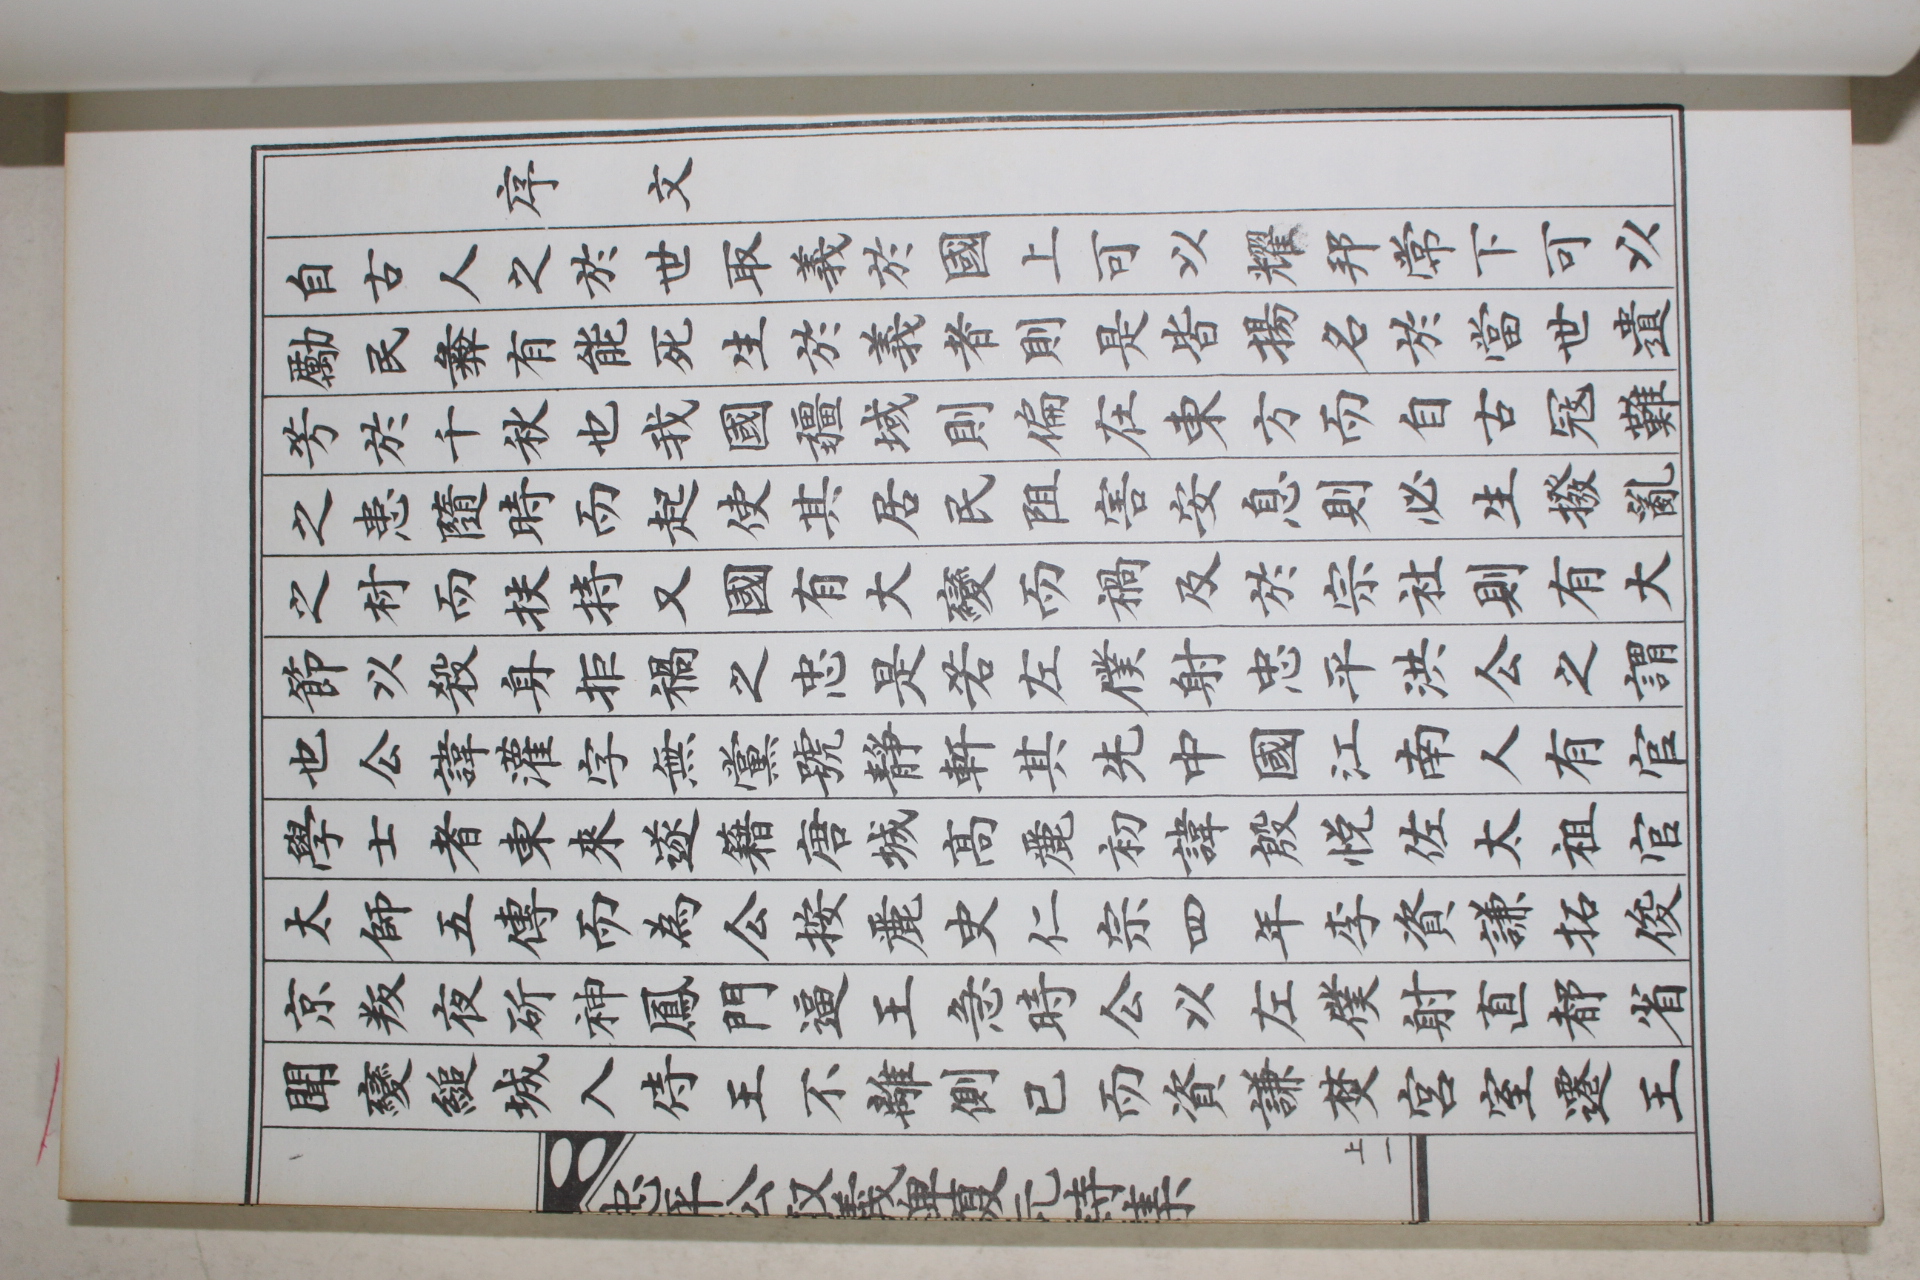 序文
自古人之於世取義於國上可以耀邦常下可以
勵民彝有能死生於義者則是皆揚名於當世遺
芳於千秋也我國疆域則偏在東方而自古冦難
之患隨時而起使其居民阻害安息則必生撥亂
之材而扶持又國有大變而禍及於宗社則有大
節以殺身拒禍之忠是若左僕射忠平洪公之謂
也公諱灌字無黨號靜軒其先中國江南人有官
學士者東來遂籍唐城高麗初諱殷悅佐太祖官
太師五傳而為公按麗史仁宗四年李資謙拓俊
京叛夜斫神鳳門逼王急時公以左僕射直都省
聞變縋城入侍王不離側已而資謙焚宮室遷王
忠平公取義碑復元詩集
上一